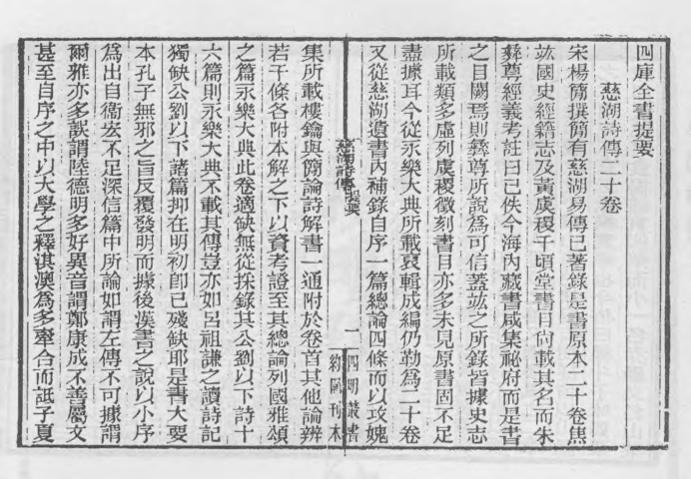 四庫全書提要
慈湖詩傳二十卷
宋楊簡撰簡有慈湖易傳已著錄是書原本二十卷焦
竑國史經籍志及黃虞稷千頃堂書目尚載其名而朱
彝尊經義考註曰已佚今海內藏書咸集祕府而是書
之目闕焉則彝尊所說為可信蓋竑之所錄皆據史志
所載類多虛列虞稷徵刻書目亦多未見原書固不足
盡據耳今從永樂大典所載裒輯成編仍勒為二十卷
又從慈湖遺書內補錄自序一篇總論四條而以攻媿
慈湖詩傳 提要
一
四明叢書
約園刊本
集所載樓鑰與簡論詩解書一通附於卷首其他論辨
若干條各附本解之下以資考證至其總論列國雅頌
之篇永樂大典此卷適缺無從採錄其公劉以下詩十
六篇則永樂大典不載其傳豈亦如呂祖謙之讀詩記
獨缺公劉以下諸篇抑在明初即已殘缺耶是書大要
本孔子無邪之旨反覆發明而據後漢書之說以小序
為出自衞宏不足深信篇中所論如謂左傳不可據謂
爾雅亦多誤謂陸德明多好異音謂鄭康成不善屬文
甚至自序之中以大學之釋淇澳為多牽合而詆子夏